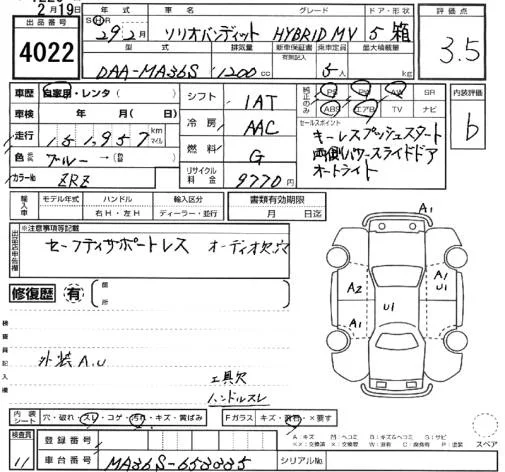 2月19日
出品番号 4022
年式 車名 グレード ドア・形状
SHR 29年2月 ソリオバンディット HYBRID MV 5 箱
評価点 3.5
型式 排気量 新車保証書 乗車定員 最大積載量
有 別記入
DAA-MA36S 1200cc 5人 kg
車歴 自家用・レンタ( )
車検 年 月( 日)
走行 km マイル
色 元色 ブルー→( 替色 )
カラーNo ZRZ
シフト 1AT
冷房 AAC
燃料 G
リサイクル料金 9770円
純正のみ PS PW AW SR
ABS エアB TV ナビ
セールスポイント
キーレスプッシュスタート
両側パワースライドドア
オートライト
内装評価 b
輸入車 モデル年式 ハンドル 輸入区分 書類有効期限
年 右H・左H ディーラー・並行 月 日迄
出品店申告欄 ※注意事項等記載
セーフティサポートレス オーディオ欠穴
修復歴 有 箇所
検査員記入欄
外装A.U
工具欠
ハンドルスレ
A1
A1
U
A2
U1
A1
A1
内装シート 穴・破れ・スレ・コゲ・汚れ・キズ・黄ばみ
Fガラス キズ・飛石・×要す
A:キズ M:ヘコミ B:キズ&ヘコミ S:サビ
××:交換済 ×:交換 W:波有 C:腐食有 P:塗装
スペア
検査員 11
登録番号
車台番号 シリアルNo.